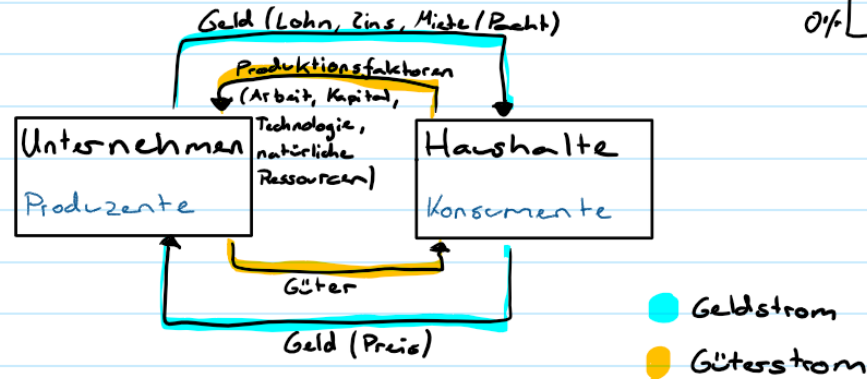 Geld (Lohn, Zins, Miete/Pacht)
0%
Produktionsfaktoren
(Arbeit, Kapital,
Technologie,
natürliche
Ressourcen)
Unternehmen
Produzente
Haushalte
Konsumente
Güter
Geld (Preis)
Geldstrom
Güterstrom